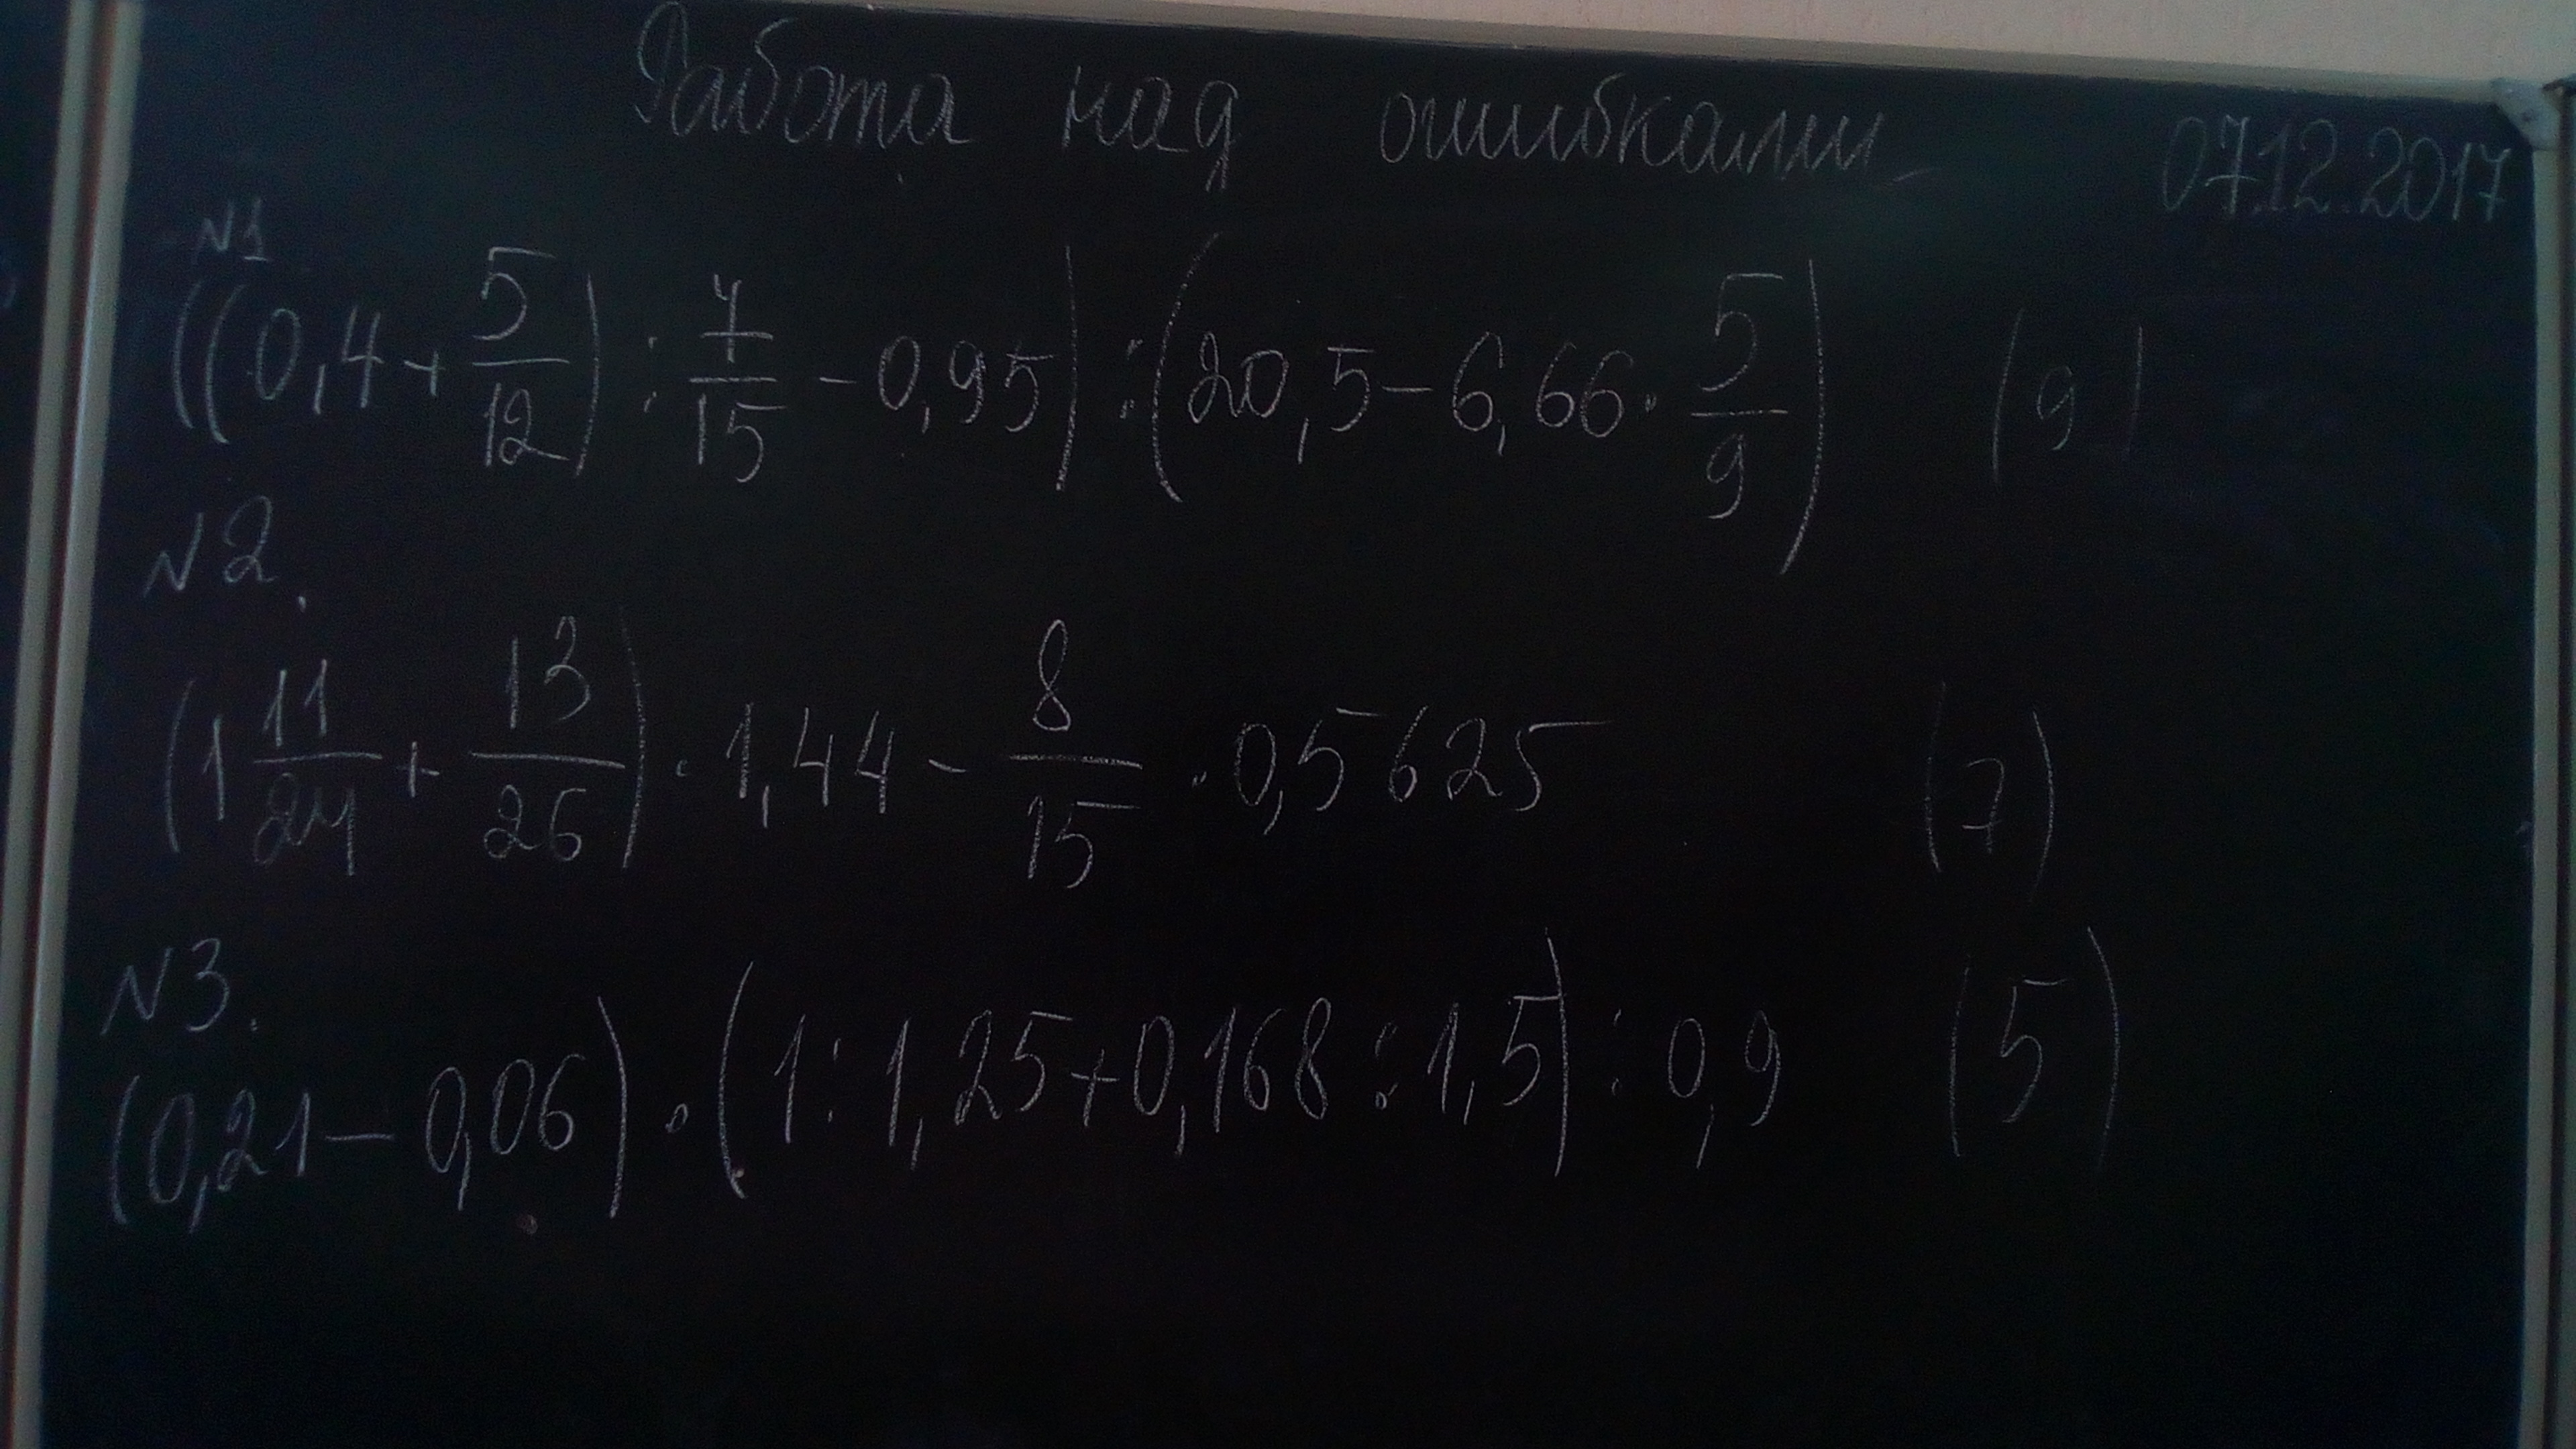 Работа над ошибками. 07.12.2017
N1
((0,4+5/12):7/15-0,95):(20,5-6,66·5/9) (9)
N2.
(1 11/24+13/26)·1,44-8/15·0,5625 (7)
N3.
(0,21-0,06)·(1:1,25+0,168:1,5):0,9 (5)